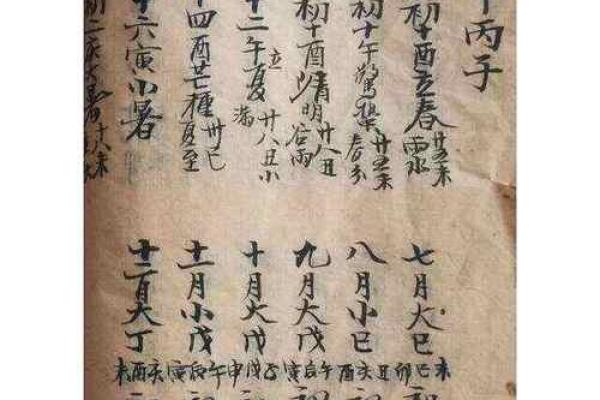 丙子
初十酉立春 廿五未雨水
初十午驚蟄 廿五未春分
初十酉清明 廿八丑谷雨
十二午立夏 廿八丑小滿
十四酉芒種 卅巳夏至
十六寅小暑
初二亥大暑 十八未
七月大巳 卯巳未
八月小巳 酉亥丑
九月大戊 寅辰午
十月大戊 申戌子
十一月小戊 寅辰午
十二月大丁 未酉亥